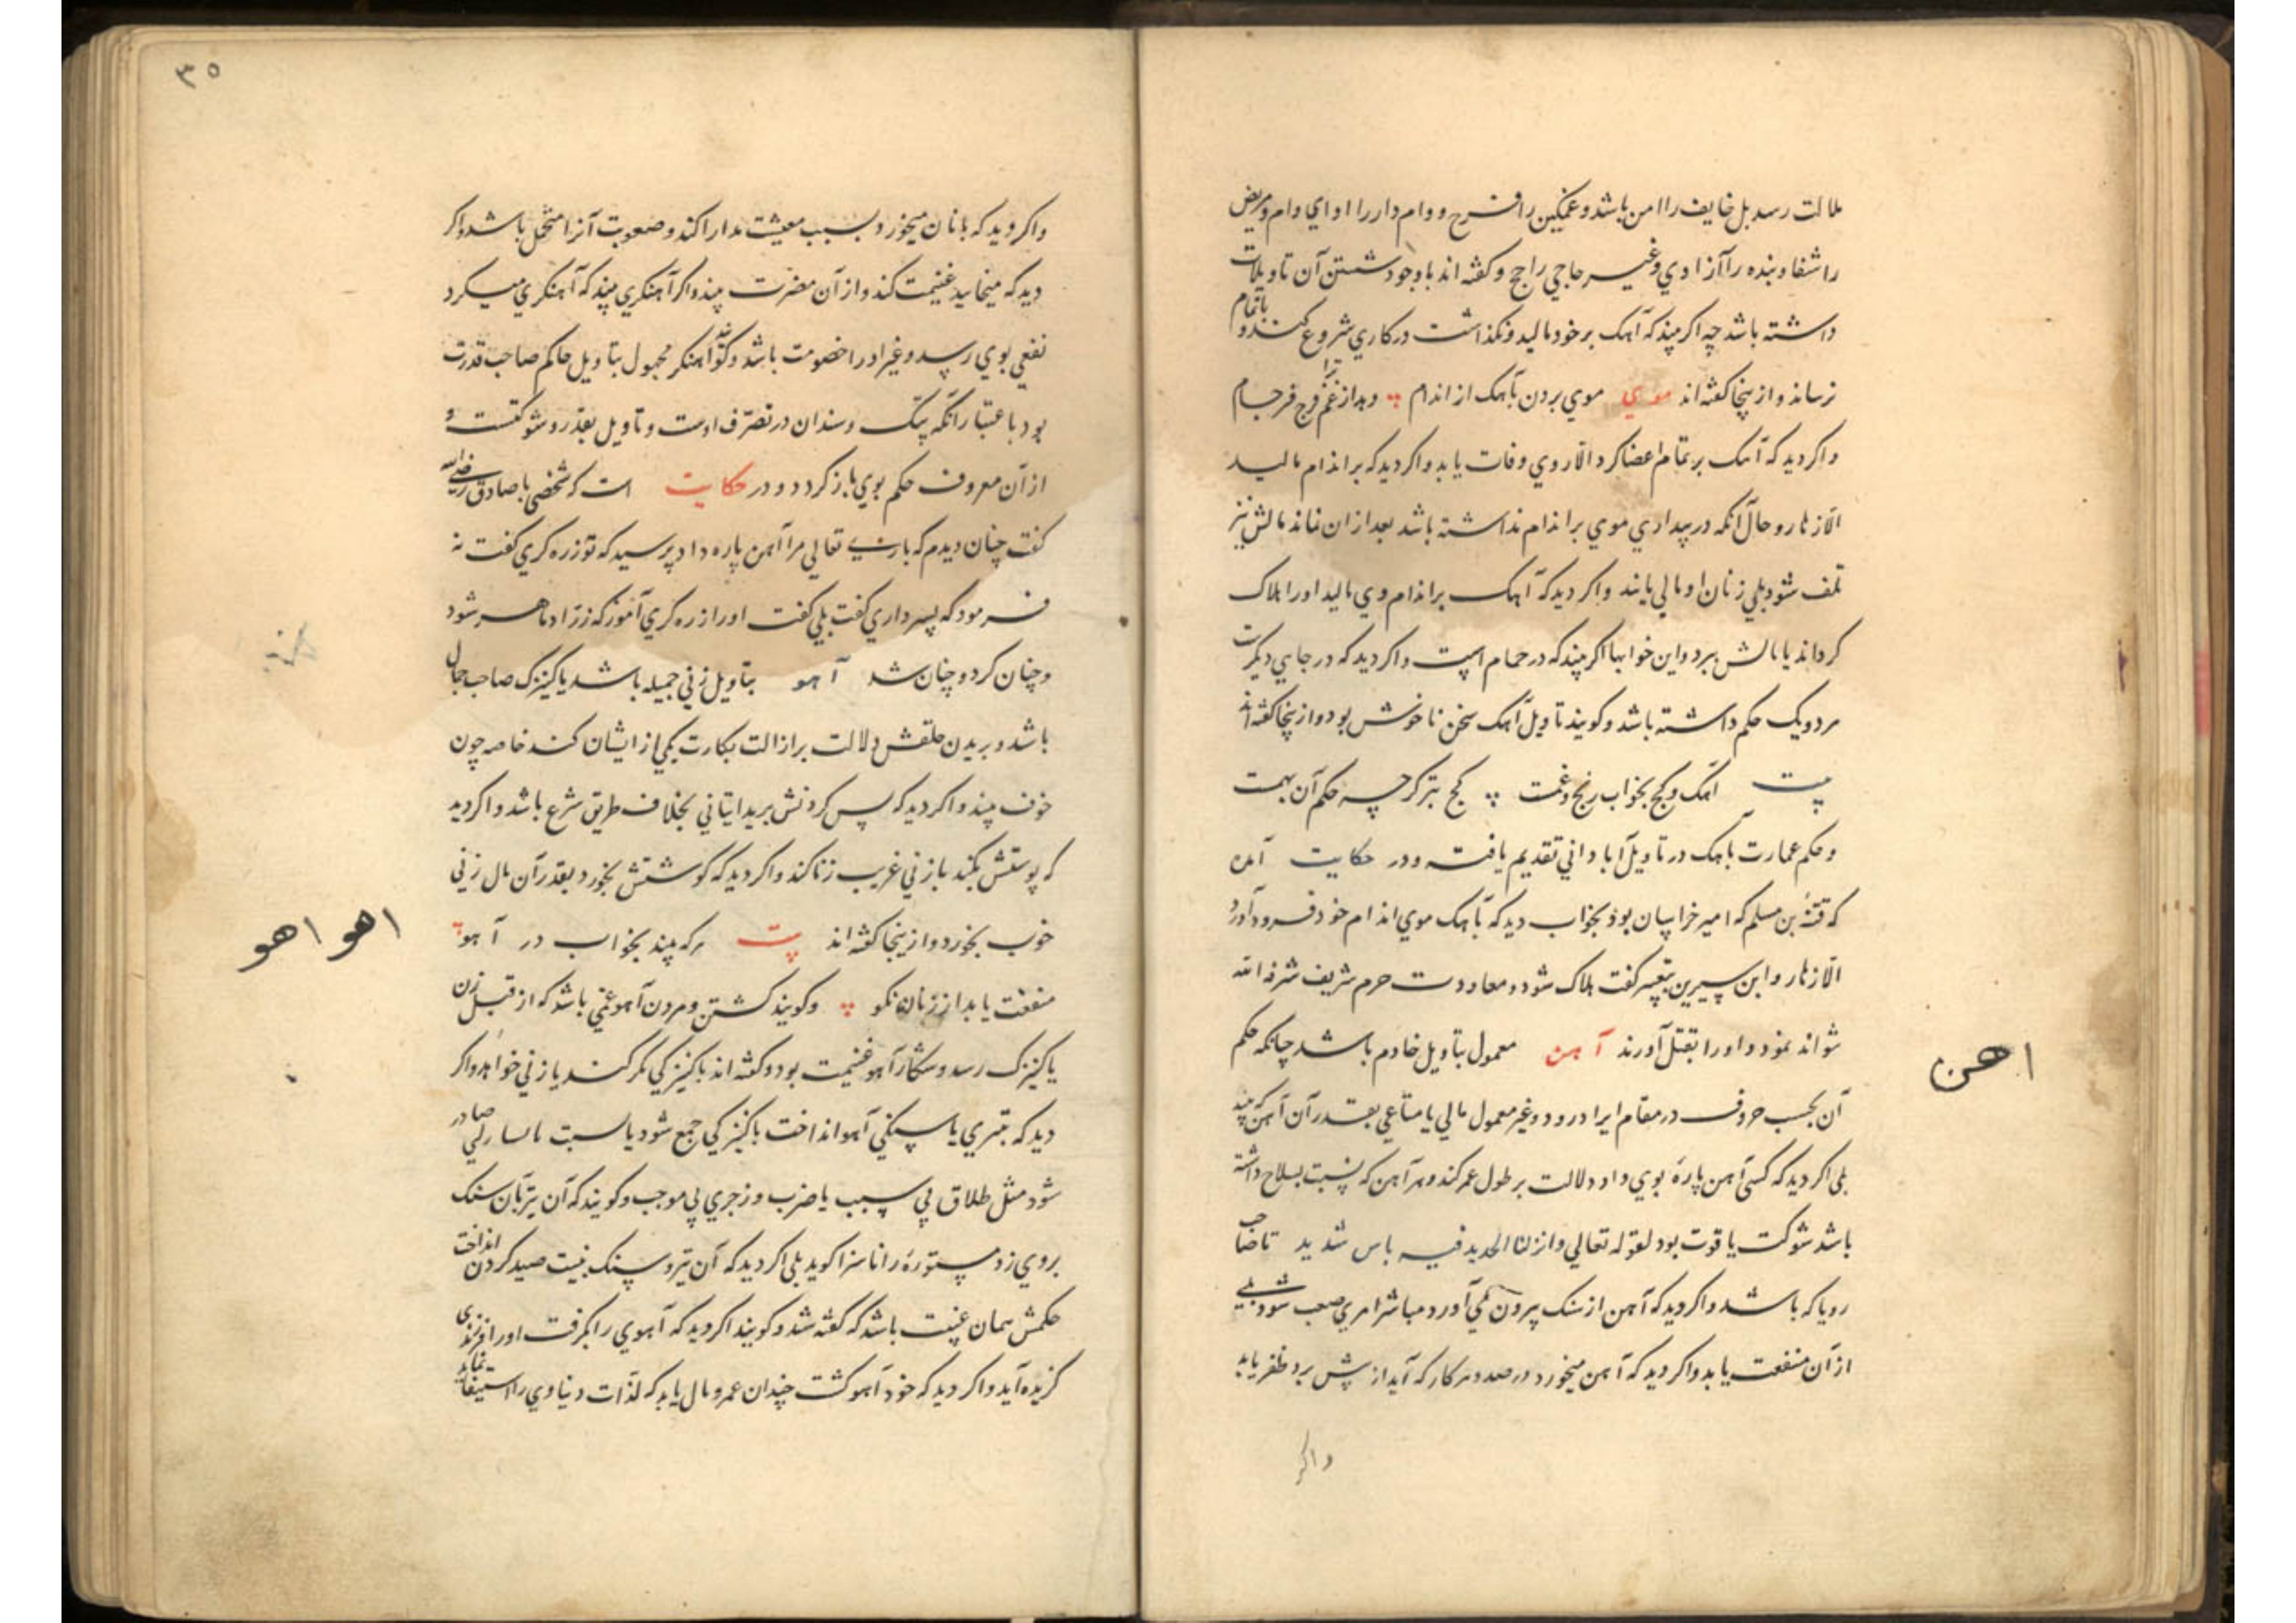 ملالت رسد بل خایف را امن باشد و غمکین را فرح و وام دار را ادای وام و مریض
را شفا و بنده را آزادي و غیر حاجي را حج و کفته اند با وجود شستن آن تاویلات
داشته باشد چه اکر بیند که آهک بر خود مالید و نکذاشت در کاري شروع کند و باتمام
نرساند و از ینجا کفته اند موي بردن بآهک از اندام وبدا از غم فرج فرجام
و اکر دید که آهک بر تمام اعضا کرد الا روي وفات یابد و اکر دید که بر اندام مالید
الا زهار و حال آنکه در بیداري موي بر اندام نداشته باشد بعد از ان نماند مالش نیز
تلف شود بلي زنان او مالي یابند و اکر دید که آهک بر اندام وي مالید او را هلاک
کرداند یا مالش ببرد و این خوابها اکر بیند که در حمام است و اکر دید که در جایي دیکرست
هر دو یک حکم داشته باشد و کویند تاویل آهک سخن ناخوش بود و از ینجا کفته اند
بیت آهک و کج بخواب رنج و غمست کج بتر کرچه حکم آن بهمست
و حکم عمارت بآهک در تاویل آباداني تقدیم یافت و در حکایت آمده
که قتیبه بن مسلم که امیر خراسان بود بخواب دید که بآهک موي اندام خود فرود آورد
الا زهار و ابن سیرین بتعبیر کفت هلاک شود و معاودت حرم شریف شرفه الله
نتواند نمود و او را بقتل آورند آهن معمول بتاویل خادم باشد چنانکه حکم
آن بحسب حروف در مقام ایراد رود و غیر معمول مالي یا متاعي بقدر آن آهن که بیند
بلی اکر دید که کسی آهن پاره بوي داد دلالت بر طول عمر کند و هر آهن که نسبت بسلاح داشته
باشد شوکت یا قوت بود لقوله تعالي و انزلنا الحدید فیه باس شدید تا صاحب
رویا که باشد و اکر دید که آهن از سنک بیرون مي آورد مباشر امري صعب شود بلي
از آن منفعت یابد و اکر دید که آهن میخورد در صدد هر کار که آید از پیش برد ظفر یابد
واکر
اهن
٣٥
و اکر دید که با نان میخورد بسبب معیشت مدارا کند و صعوبت آنرا متحمل باشد و اکر
دید که میخاید غنیمت کند و از آن مضرت بیند و اکر آهنکري بیند که آهنکري میکرد
نفعي بوي رسد و غیر او را خصومت باشد و کواهنکر مجهول بتاویل حاکم صاحب قدرت
بود باعتبار آنکه پتک و سندان در تصرف اوست و تاویل بقدر و شوکتست و
از آن معروف حکم بوي باز کردد و در حکایت است که شخصي با صادق رضي الله
کفت چنان دیدم که باري تعالي مرا آهن پاره داد پرسید که تو زره کري کفت نه
فرمود که پسر داري کفت بلي کفت او را زره کري آموز که زراد ماهر شود
و چنان کرد و چنان شد آهو بتاویل زني جمیله باشد یا کنیزک صاحب جمال
باشد و بریدن حلقش دلالت بر ازالت بکارت یکي از ایشان کند خاصه چون
خون بیند و اکر دید که پس کردنش برید ایتاني بخلاف طریق شرع باشد و اکر دید
که پوستش بکند با زني غریب زنا کند و اکر دید که کوشتش بخورد بقدر آن مال زني
خوب بخورد و از ینجا کفته اند بیت هرکه بیند بخواب در آهو
منفعت یابد از زنان نکو و کویند کشتن و مردن آهو غمي باشد که از قبل زن
یا کنیزک رسد و شکار آهو غنیمت بود و کفته اند با کنیزکي مکر کند یا زني خواهد و اکر
دید که بتیري یا سنکي آهو انداخت با کنیزکي جمع شود یا نسبت با نسا صادر
شود مثل طلاق بي سبب یا ضرب و زجري بي موجب و کویند که آن تیر یا آن سنک
بروي زد مستوره را ناسزا کوید بلی اکر دید که آن تیر و سنک بنیت صید کردن انداخت
حکمش همان غنیمت باشد که کفته شد و کویند اکر دید که آهوي را بکرفت او را فرزندي
کزیده آید و اکر دید که خود آهو کشت چندان عمر و مال یابد که لذات دنیاوي را استیفا نماید
اهو اهو